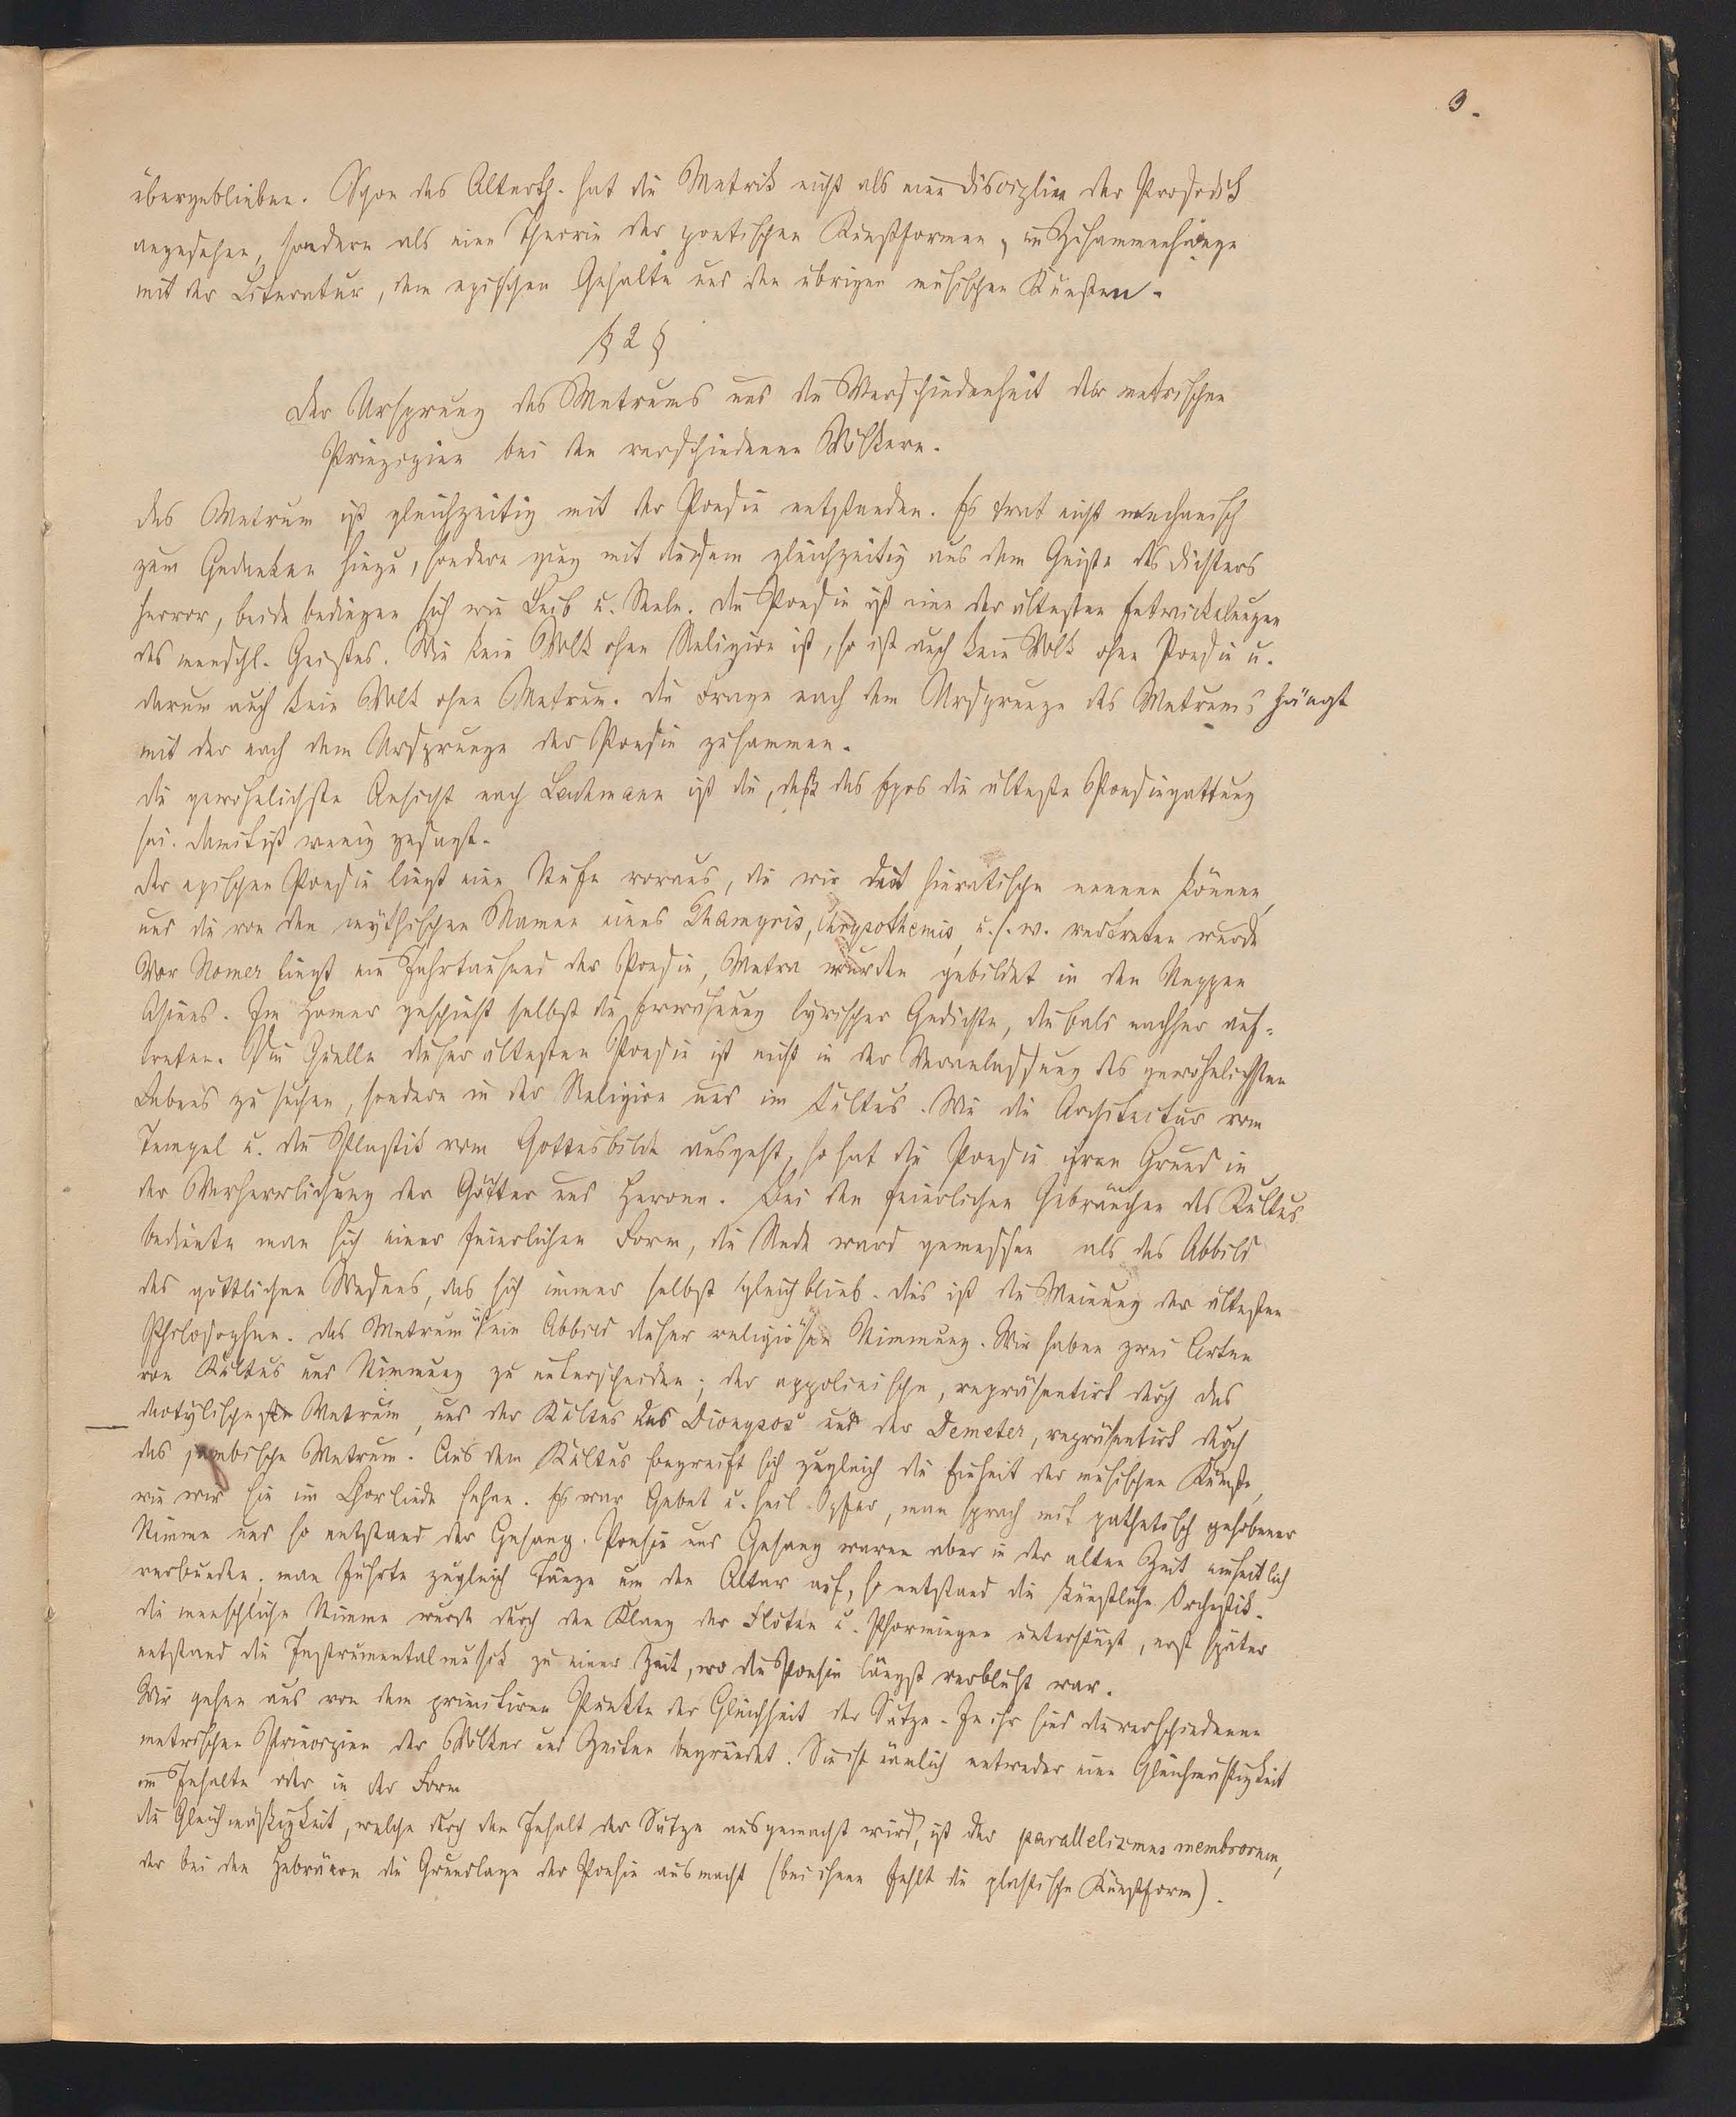 3.
übergeblieben. Schon das Alterth. hat die Metrik nicht als eine Disciplin der Prosodik
angesehen, sondern als eine Theorie der poetischen Kunstformen, im Zusammenhange
mit der Literatur, dem epischen Gehalte und den übrigen musischen Künsten.
§ 2 §
Der Ursprung des Metrums und die Verschiedenheit der metrischen
Prinzipien bei den verschiedenen Völkern.
Das Metrum ist gleichzeitig mit der Poesie entstanden. Es trat nicht mechanisch
zum Gedanken hinzu, sondern ging mit diesem gleichzeitig aus dem Geiste des Dichters
hervor, beide bedingen sich wie Leib u. Seele. Die Poesie ist eine der ältesten Entwickelungen
des menschl. Geistes. Wie kein Volk ohne Religion ist, so ist auch kein Volk ohne Poesie u.
darum auch kein Volk ohne Metrum. Die Frage nach dem Ursprunge des Metrums hängt
mit der nach dem Ursprunge der Poesie zusammen.
Die gewöhnlichste Ansicht nach Lachmann ist die, daß das Epos die älteste Poesiegattung
sei. Damit ist wenig gesagt.
Der epischen Poesie liegt eine Stufe voraus, die wir die hieratische nennen können,
und die von den mythischen Namen eines Thamyris, Chrysothemis, u.s.w. vertreten wurde
Vor Homer liegt ein Jahrtausend der Poesie, Metra wurden gebildet in den Steppen
Asiens. Im Homer geschieht selbst die Erwähnung lyrischer Gedichte, die bald nachher auf-
treten. Die Quelle dieser ältesten Poesie ist nicht in der Veranlassung des gewöhnlichsten
Lebens zu suchen, sondern in der Religion und im Cultus. Wie die Architectur vom
Tempel u. die Plastik vom Gottesbilde ausgeht, so hat die Poesie ihren Grund in
der Verherrlichung der Götter und Heroen. Bei den feierlichen Gebräuchen des Kultus
bediente man sich einer feierlichen Form, die Rede ward gemessen als das Abbild
des göttlichen Wesens, das sich immer selbst gleich blieb. Dies ist die Meinung der ältesten
Philosophen. Das Metrum ist ein Abbild dieser religiösen Stimmung. Wir haben zwei Arten
von Kultus und Stimmung zu unterscheiden; der appolinische, repräsentirt durch das
dactylische Metrum, und der Kultus des Dionysos und der Demeter, repräsentirt durch
das jambische Metrum. Aus dem Kultus begreift sich zugleich die Einheit der musischen Künste,
wie wir sie im Chorliede sehen. Es war Gebet u. heil. Opfer, man sprach mit pathetisch gehobener
Stimme und so entstand der Gesang. Poesie und Gesang waren aber in der alten Zeit einheitlich
verbunden; man führte zugleich Tänze um den Altar auf, so entstand die künstliche Orchestik.
Die menschliche Stimme wurde durch den Klang der Flöten u. Phormingen unterstützt, erst später
entstand die Instrumentalmusik zu einer Zeit, wo die Poesie längst verblüht war.
Wir gehen aus von dem primitiven Punkte der Gleichheit der Sätze. In ihr sind die verschiedenen
metrischen Principien der Völker und Zeiten begründet. Sie ist nämlich entweder eine Gleichmäßigkeit
im Inhalte oder in der Form
Die Gleichmäßigkeit, welche durch den Inhalt der Sätze ausgemacht wird, ist der parallelismus membrorum,
der bei den Hebräern die Grundlage der Poesie ausmacht (bei ihnen fehlt die plastische Kunstform).